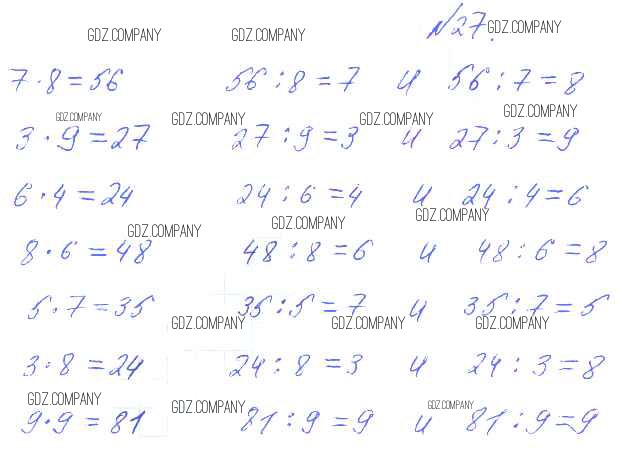 GDZ.COMPANY GDZ.COMPANY №27. GDZ.COMPANY
7·8=56 56:8=7 и 56:7=8
GDZ.COMPANY GDZ.COMPANY GDZ.COMPANY GDZ.COMPANY
3·9=27 27:9=3 и 27:3=9
6·4=24 24:6=4 и 24:4=6
GDZ.COMPANY GDZ.COMPANY GDZ.COMPANY
8·6=48 48:8=6 и 48:6=8
5·7=35 35:5=7 и 35:7=5
GDZ.COMPANY GDZ.COMPANY GDZ.COMPANY
3·8=24 24:8=3 и 24:3=8
GDZ.COMPANY GDZ.COMPANY GDZ.COMPANY
9·9=81 81:9=9 и 81:9=9